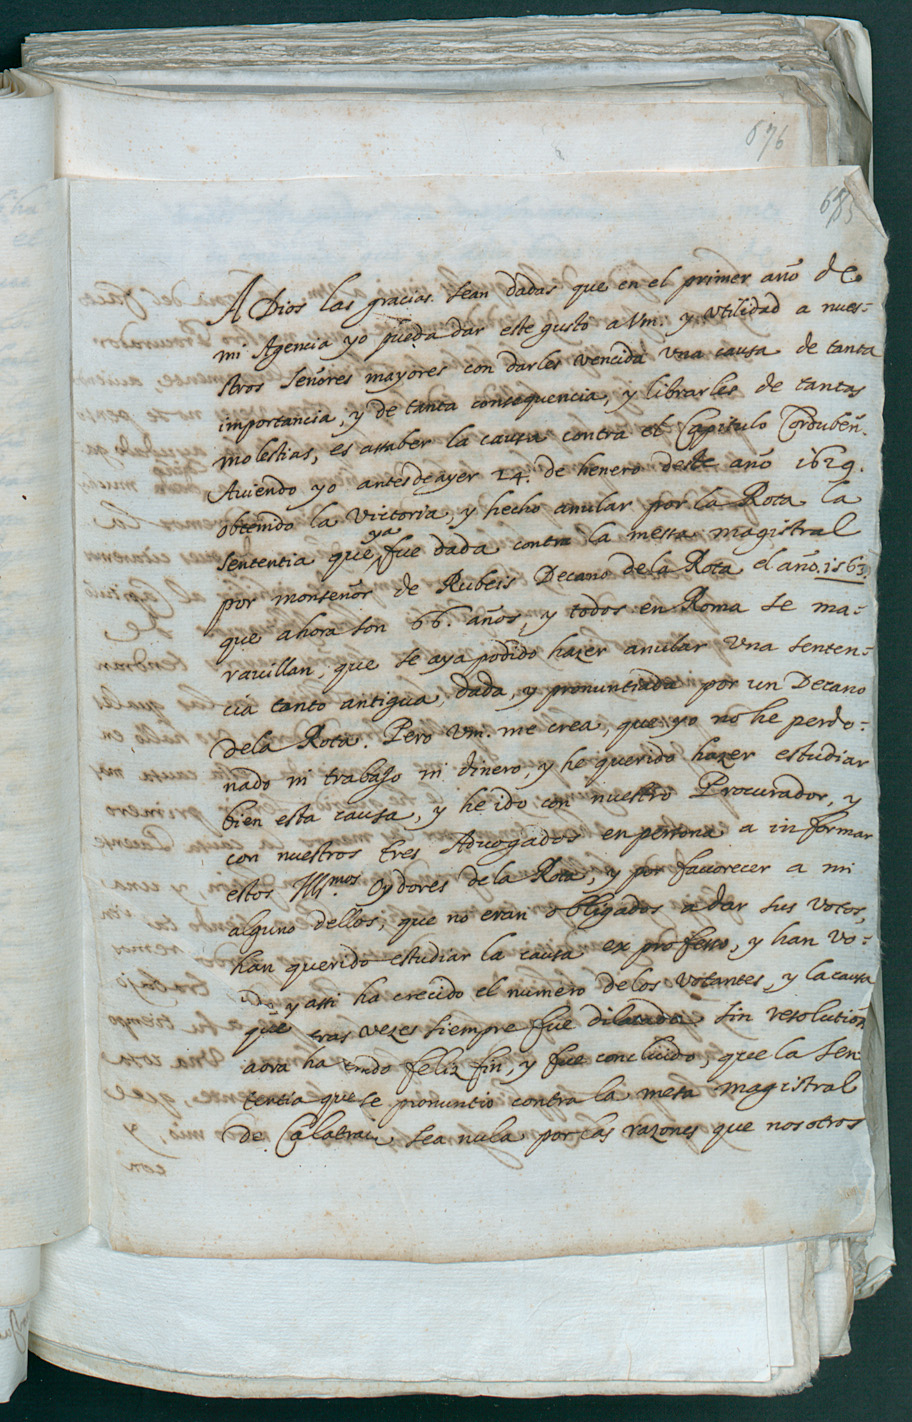 676
685
A Dios las gracias sean dadas que en el primer año de
mi Agencia yo pueda dar este gusto a Vm. y Utilidad a nues-
stros señores mayores con darles vencida Una causa de tanta
importancia, y de tanta consequencia, y librarles de tantas
molestias, es assaber la causa contra el Capitulo Cordubeñ.
Aviendo yo antesdeayer 24. de henero deste año 1629.
obtenido la Victoria, y hecho anular por la Rota la
sententia que ya fue dada contra la messa magistral
por monseñor de Rubeis Decano de la Rota el año 1563.
que ahora son 66. años, y todos en Roma se ma-
ravillan, que se aya podido hazer anular Una senten-
cia tanto antigua, dada, y pronuntiada por un Decano
dela Rota. Pero Vm. me crea, que yo no he perdo-
nado ni trabajo ni dinero, y he querido hazer estudiar
bien esta causa, y he ido con nuestro Procurador, y
con nuestros tres Advogados en persona a informar
estos Illmos Oydores de la Rota, y por favorecer a mi
alguno dellos, que no eran obligados a dar sus votos,
han querido estudiar la causa ex professo, y han vo-
tado y assi ha crecido el numero delos Votantes, y la causa
que tras vezes siempre fue dilatada sin resolution
aora ha tenido feliz fin, y fue concluido, que la sen
tentia que se pronuntio contra la mesa magistral
de Calatrava sea nula por las razones que nosotros